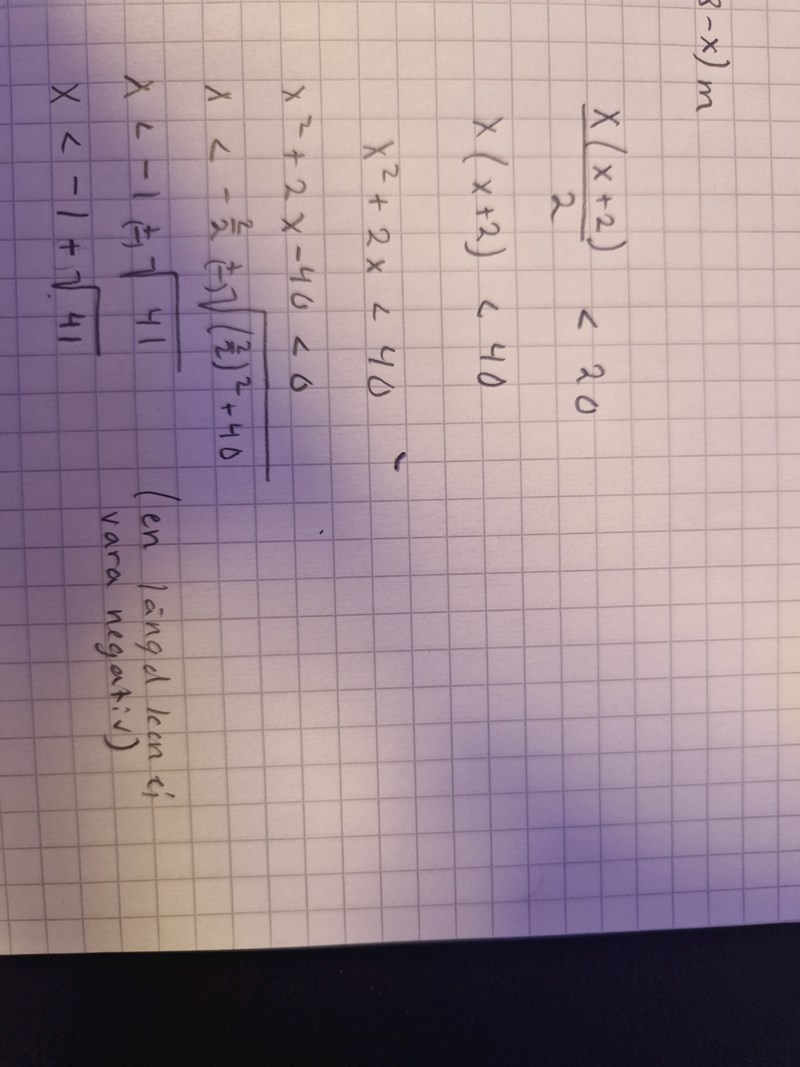 8 - x) m
x(x+2)/2 < 20
x(x+2) < 40
x² + 2x < 40
x² + 2x - 40 < 0
x < - 2/2 (±) √((2/2)² + 40)
x < -1 (±) √41 (en längd kan ej
vara negativ)
x < -1 + √41